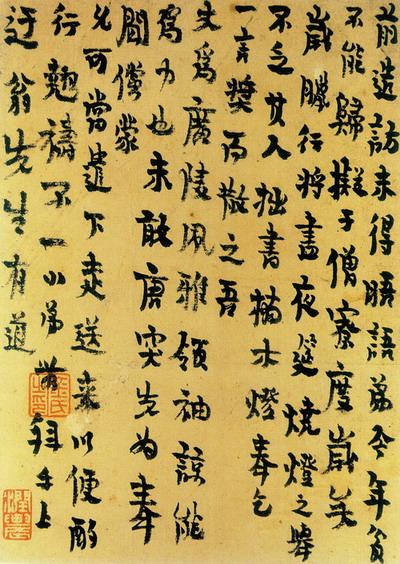 前造訪未得晤語弟今年貧
不能歸擬于僧寮度歲矣
歲臘行將晝夜筵燒燈之舉
不乏其人拙書描水燈奉乞
一言獎而散之吾
丈爲廣陵風雅領袖諒能
爲力也未敢唐突先为奉
聞儻蒙
允可當遣下走送來以便酌
行禱不一小弟拜手上
迂翁先生有道